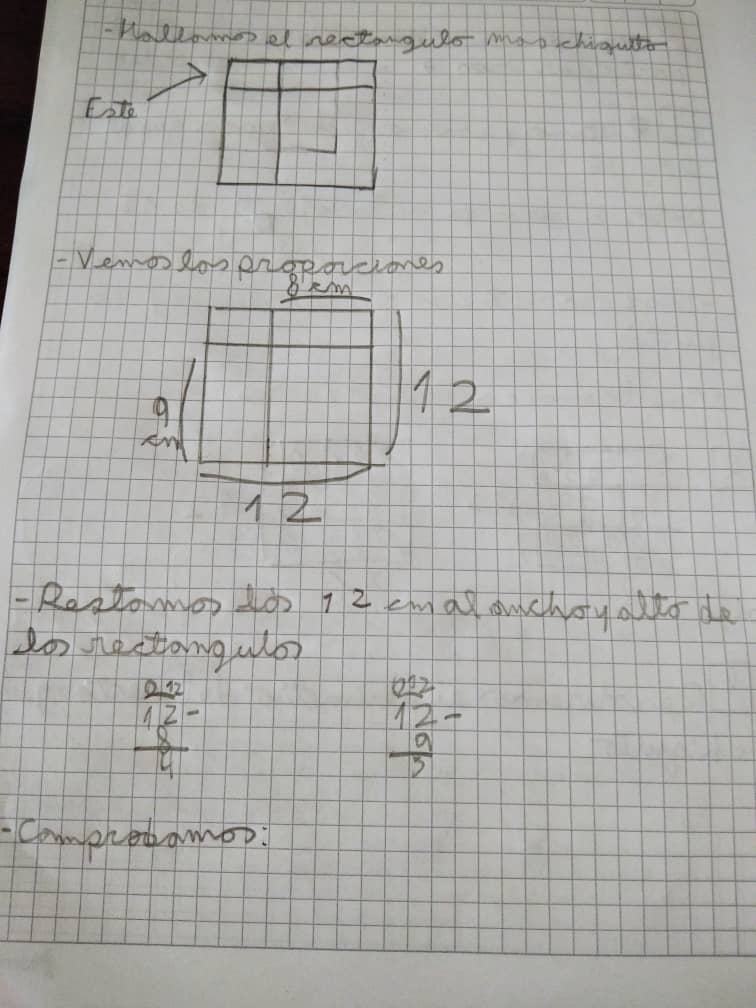 -Hallamos el rectangulo mas chiquito
Este
-Vemos las proporciones
8 cm
9
cm
12
12
-Restamos los 12 cm al ancho y alto de
los rectangulos
0 12
12-
8
4
012
12-
9
3
-Comprobamos: